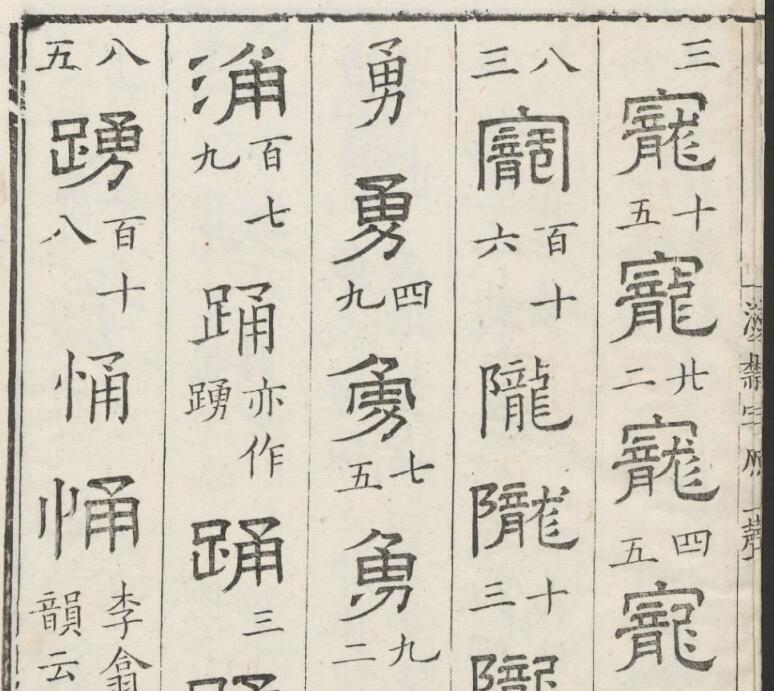 三寵十五寵廿二寵四五寵
八三寵百十六隴隴十三隴
勇勇四九勇七五勇九二
涌百七九踊亦作踴踊三
八五踴百十八悀悀李翕韻云